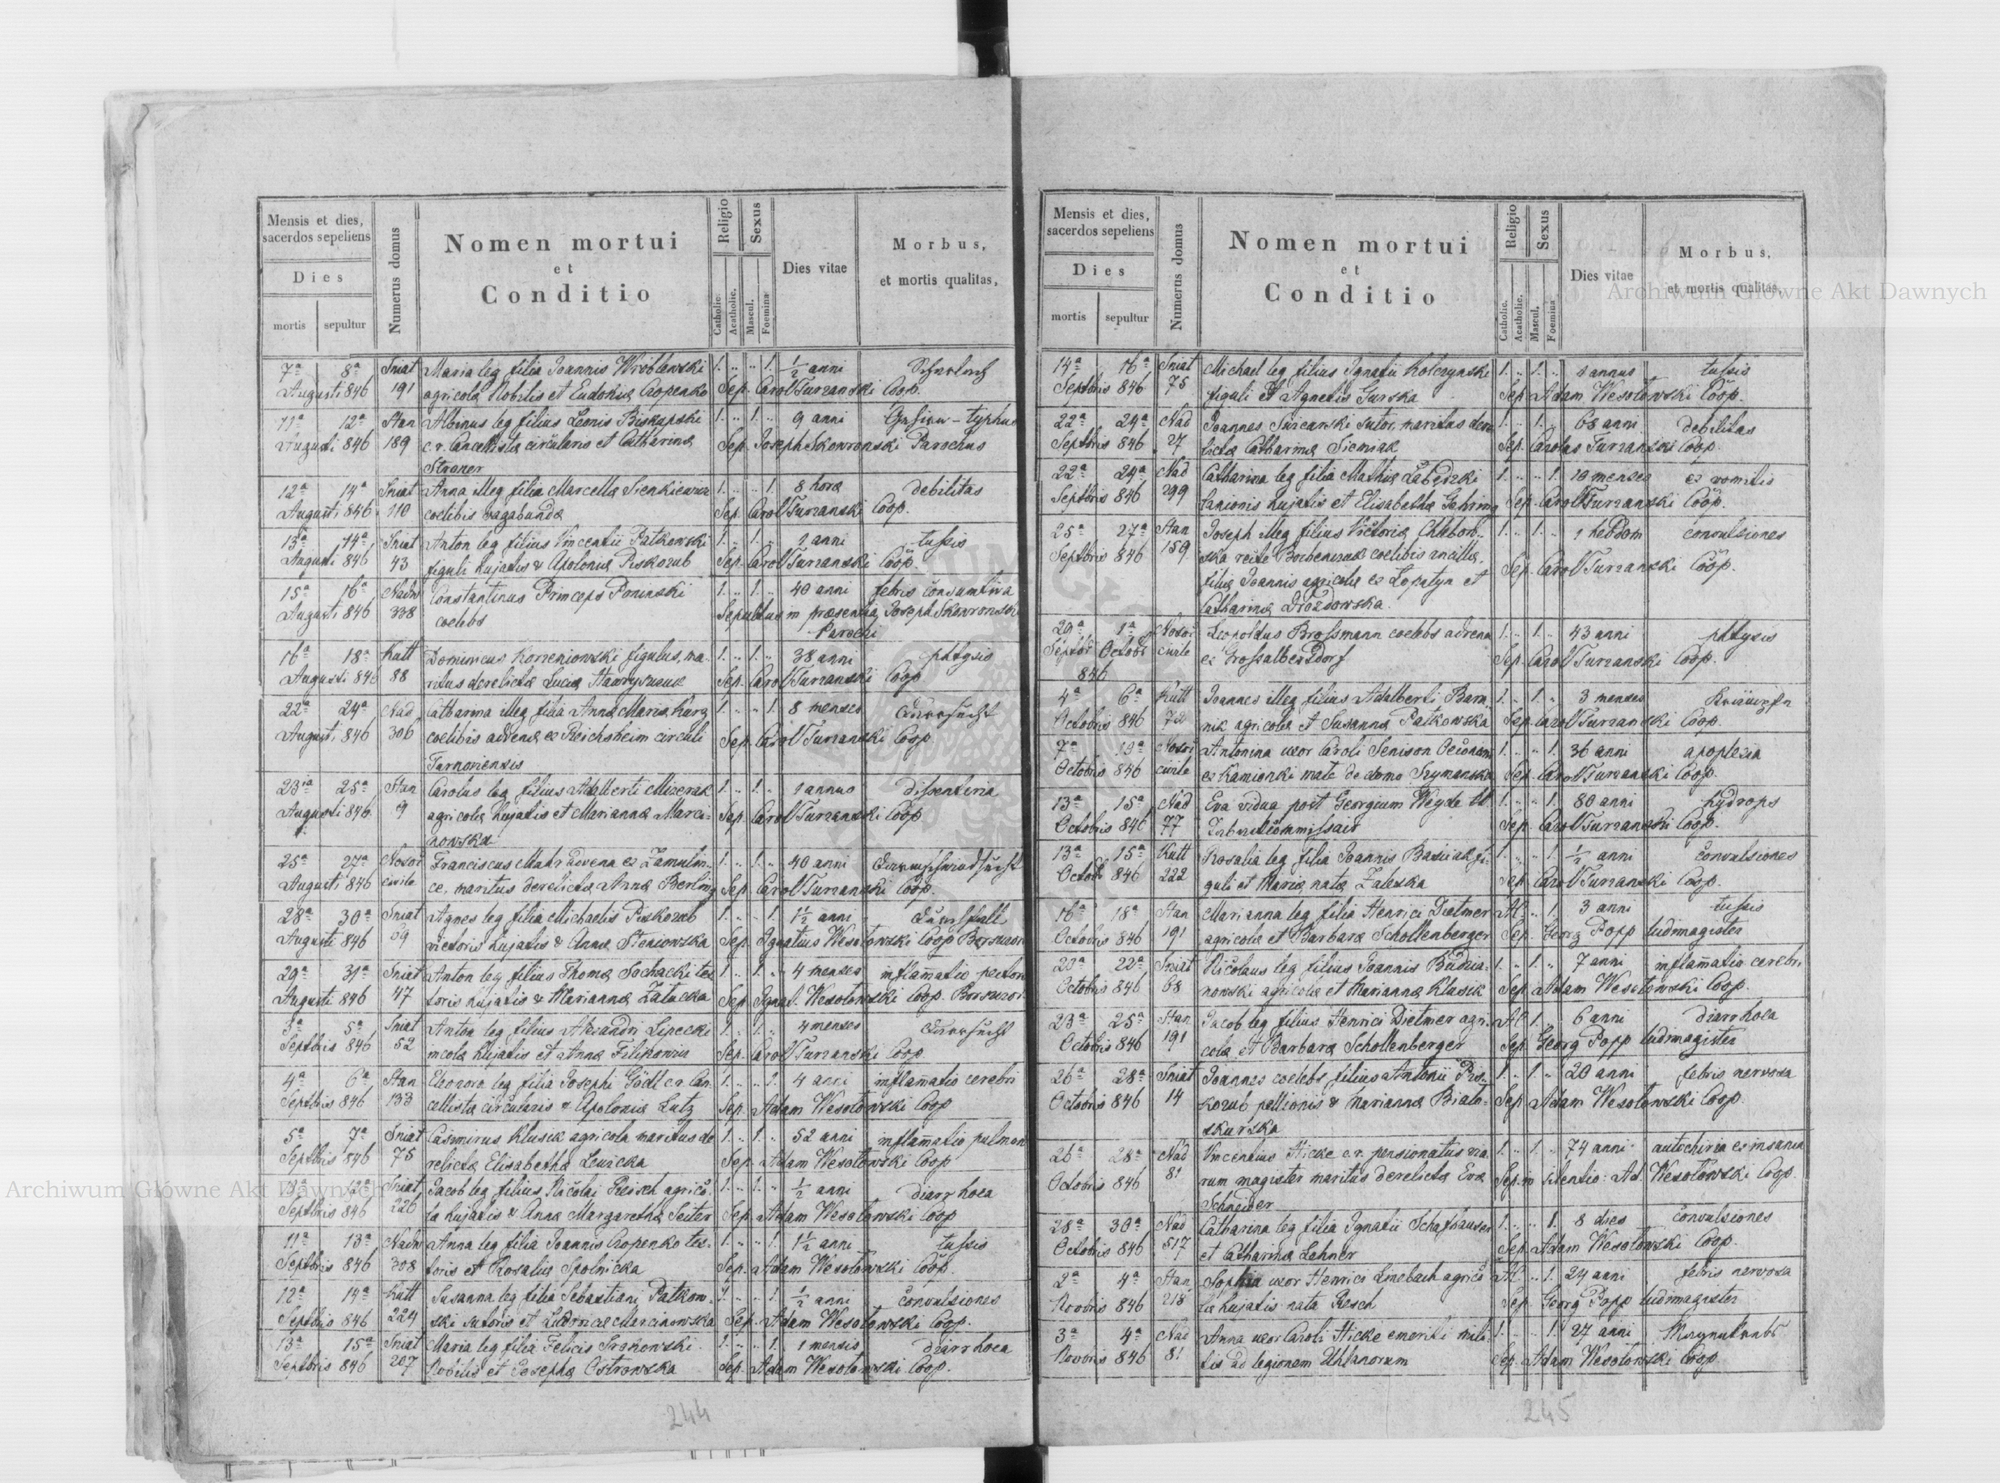 Mensis et dies,
sacerdos sepeliens
Dies
mortis
sepultur
Numerus domus
Nomen mortui
et
Conditio
Religio
Catholic.
Acatholic.
Sexus
Mascul.
Foeminæ
Dies vitae
Morbus,
et mortis qualitas,
7ª 8ª Sniat Maria leg filia Joannis Wroblewski 1. 1. ½ anni
Augusti 846 191 agricolæ Nobilis et Eudoxiæ Cropenko Sep. Carol Turzanski Coop.
11ª 12ª Stan Albinus leg filius Leonis Biskupski 1. 1. 9 anni typhus
Augusti 846 189 c.r. Cancellistæ circularis et Catharinæ Sep. Joseph Skowronski Parochus
Straner
12ª 14ª Sniat Anna illeg filia Marcellæ Sienkiewicz 1. 1. 8 horæ debilitas
Augusti 846 110 coelibis vagabundæ Sep. Carol Turzanski Coop.
13ª 14ª Sniat Anton leg filius Vincentii Patkowski 1. 1. 1 anni tussis
Augusti 846 43 figuli hujatis & Apoloniæ Piskozub Sep. Carol Turzanski Coop.
15ª 16ª Nadw Constantinus Princeps Poninski 1. 1. 40 anni febris consumtiva
Augusti 846 338 coelebs Sepultus in præsentia Joseph Skowronski
Parochi
16ª 18ª Kutt Dominicus Korzeniowski figulus, ma- 1. 1. 38 anni phtysis
Augusti 846 88 ritus derelictæ Luciæ Hawryszczuk Sep. Carol Turzanski Coop
22ª 24ª Nad Catharina illeg filia Annæ Mariæ Kurz 1. 1. 8 menses
Augusti 846 306 coelibis advenæ ex Reichsheim circuli Sep. Carol Turzanski Coop
Tarnoviensis
23ª 25ª Stan Carolus leg filius Adalberti Mizerak 1. 1. 1 annus dissenteria
Augusti 846 9 agricolæ hujatis et Mariannæ Marci- Sep. Carol Turzanski Coop
nowska
25ª 27ª Nosoc Franciscus Mahr advena ex Zamulin- 1. 1. 40 anni
Augusti 846 civile ce, maritus derelictæ Annæ Berling Sep. Carol Turzanski Coop.
28ª 30ª Sniat Agnes leg filia Michaelis Piskozub 1. 1. 1½ anni
Augusti 846 69 rictoris hujatis & Annæ Steniowska Sep. Ignatius Wesołowski Coop Borszczow
29ª 31ª Sniat Anton leg filius Thomæ Sochacki tex 1. 1. 4 menses inflamatio pectoris
Augusti 846 47 toris hujatis & Mariannæ Zatacka Sep. Ignat. Wesołowski Coop. Borszczow
3ª 5ª Sniat Anton leg filius Alexandri Lipecki 1. 1. 4 menses
Septbris 846 52 incolæ hujatis et Annæ Filipowicz Sep. Carol Turzanski Coop
4ª 6ª Stan Eleonora leg filia Josephi Gödl c.r. Can- 1. 1. 4 anni inflamatio cerebri
Septbris 846 133 cellistæ circularis & Apoloniæ Lutz Sep. Adam Wesołowski Coop
5ª 7ª Sniat Casimirus Klusik agricola maritus de 1. 1. 52 anni inflamatio pulmon
Septbris 846 75 relictæ Elisabethæ Lewicka Sep. Adam Wesołowski Coop
12ª Sniat Jacob leg filius Nicolai Reisch agrico- 1. 1. ½ anni diarrhoea
Septbris 846 226 læ hujatis & Annæ Margarethæ Seiter Sep. Adam Wesołowski Coop
11ª 13ª Nadw Anna leg filia Joannis Cropenko tex- 1. 1. 1½ anni tussis
Septbris 846 308 toris et Rosaliæ Spolnicka Sep. Adam Wesołowski Coop.
12ª 14ª Kutt Susanna leg filia Sebastiani Patkow- 1. 1. ½ anni convulsiones
Septbris 846 224 ski sutoris et Ludovicæ Marcinowska Sep. Adam Wesołowski Coop.
13ª 15ª Sniat Maria leg filia Felicis Srokowski 1. 1. 1 mensis diarrhoea
Septbris 846 207 Nobilis et Josephæ Ostrowska Sep. Adam Wesołowski Coop.
244
Mensis et dies,
sacerdos sepeliens
Dies
mortis
sepultur
Numerus domus
Nomen mortui
et
Conditio
Religio
Catholic.
Acatholic.
Sexus
Mascul.
Foeminæ
Dies vitae
Morbus,
et mortis qualitas,
14ª 16ª Sniat Michael leg filius Ignatii Kolczynski 1. 1. 1 annus tussis
Septbris 846 75 figuli et Agnetis Gurska Sep. Adam Wesołowski Coop.
22ª 24ª Nad Joannes sutor, maritus dere 1. 1. 68 anni debilitas
Septbris 846 27 lictæ Catharinæ Sieniak Sep. Carolus Turzanski Coop.
22ª 24ª Nad Catharina leg filia Mathiæ Łabędzki 1. 1. 10 menses ex vomitis
Septbris 846 299 lanionis hujatis et Elisabethæ Gehring Sep. Carol Turzanski Coop.
25ª 27ª Stan Joseph illeg filius Victoriæ 1. 1. 1 hebdom convulsiones
Septbris 846 159 ska recte coelibis ancillæ, Sep. Carol Turzanski Coop.
filiæ Joannis agricolæ ex Lopatyn et
Catharinæ Drozdowska.
29ª 1ª Nosoc Leopoldus Brossmann coelebs advena 1. 1. 43 anni phtysis
Septbr Octobr civile ex Grossalbersdorf Sep. Carol Turzanski Coop.
846
4ª 6ª Kutt Joannes illeg filius Adalberti Barn 1. 1. 3 menses
Octobris 846 nik agricolæ et Susannæ Patkowska Sep. Carol Turzanski Coop.
7ª Nosoc Antonina uxor Caroli Senison Oeconom 1. 1. 36 anni apoplexia
Octobris 846 civile ex Kamionki małe de domo Szymanska Sep. Carol Turzanski Coop.
13ª 15ª Nad Eva vidua post Georgium Weyde 1. 1. 80 anni hydrops
Octobris 846 77 Sep. Carol Turzanski Coop.
13ª 15ª Kutt Rosalia leg filia Joannis fi- 1. 1. ½ anni convulsiones
Octobr 846 222 guli et Mariæ natæ Zaleska Sep. Carol Turzanski Coop.
16ª 18ª Stan Marianna leg filia Henrici Dietmer Al. 1. 3 anni tussis
Octobris 846 191 agricolæ et Barbaræ Schollenberger Sep. Georg Popp ludimagister
20ª 22ª Sniat Nicolaus leg filius Joannis Budzia- 1. 1. 7 anni inflamatio cerebri
Octobris 846 68 nowski agricolæ et Mariannæ Klusik Sep. Adam Wesołowski Coop.
23ª 25ª Stan Jacob leg filius Henrici Dietmer agri- Al. 1. 6 anni diarrhoea
Octobris 846 191 colæ et Barbaræ Schollenberger Sep. Georg Popp ludimagister
26ª 28ª Sniat Joannes coelebs, filius Antonii Pis- 1. 1. 20 anni febris nervosa
Octobris 846 14 kozub pellionis & Mariannæ Biało- Sep. Adam Wesołowski Coop.
skurska
26ª 28ª Nad Vincentius Hicke c.r. pensionatus via- 1. 1. 74 anni autochiria ex insania
Octobris 846 81 rum magister maritus derelictæ Evæ Sep. in silentio: Ad. Wesołowski Coop.
Schneider
28ª 30ª Nad Catharina leg filia Ignatii Schafhauser 1. 1. 8 dies convulsiones
Octobris 846 517 et Catharinæ Lehner Sep. Adam Wesołowski Coop.
2ª 4ª Stan Sophia uxor Henrici Linebach agrico Al. 1. 24 anni febris nervosa
Novbris 846 218 læ hujatis nata Resch Sep. Georg Popp ludimagister
3ª 4ª Nad Anna uxor Caroli Hicke emeriti mili- 1. 1. 27 anni
Novbris 846 81 tis ad legionem Uhlanorum Sep. Adam Wesołowski Coop
245
Archiwum Główne Akt Dawnych
Archiwum Główne Akt Dawnych